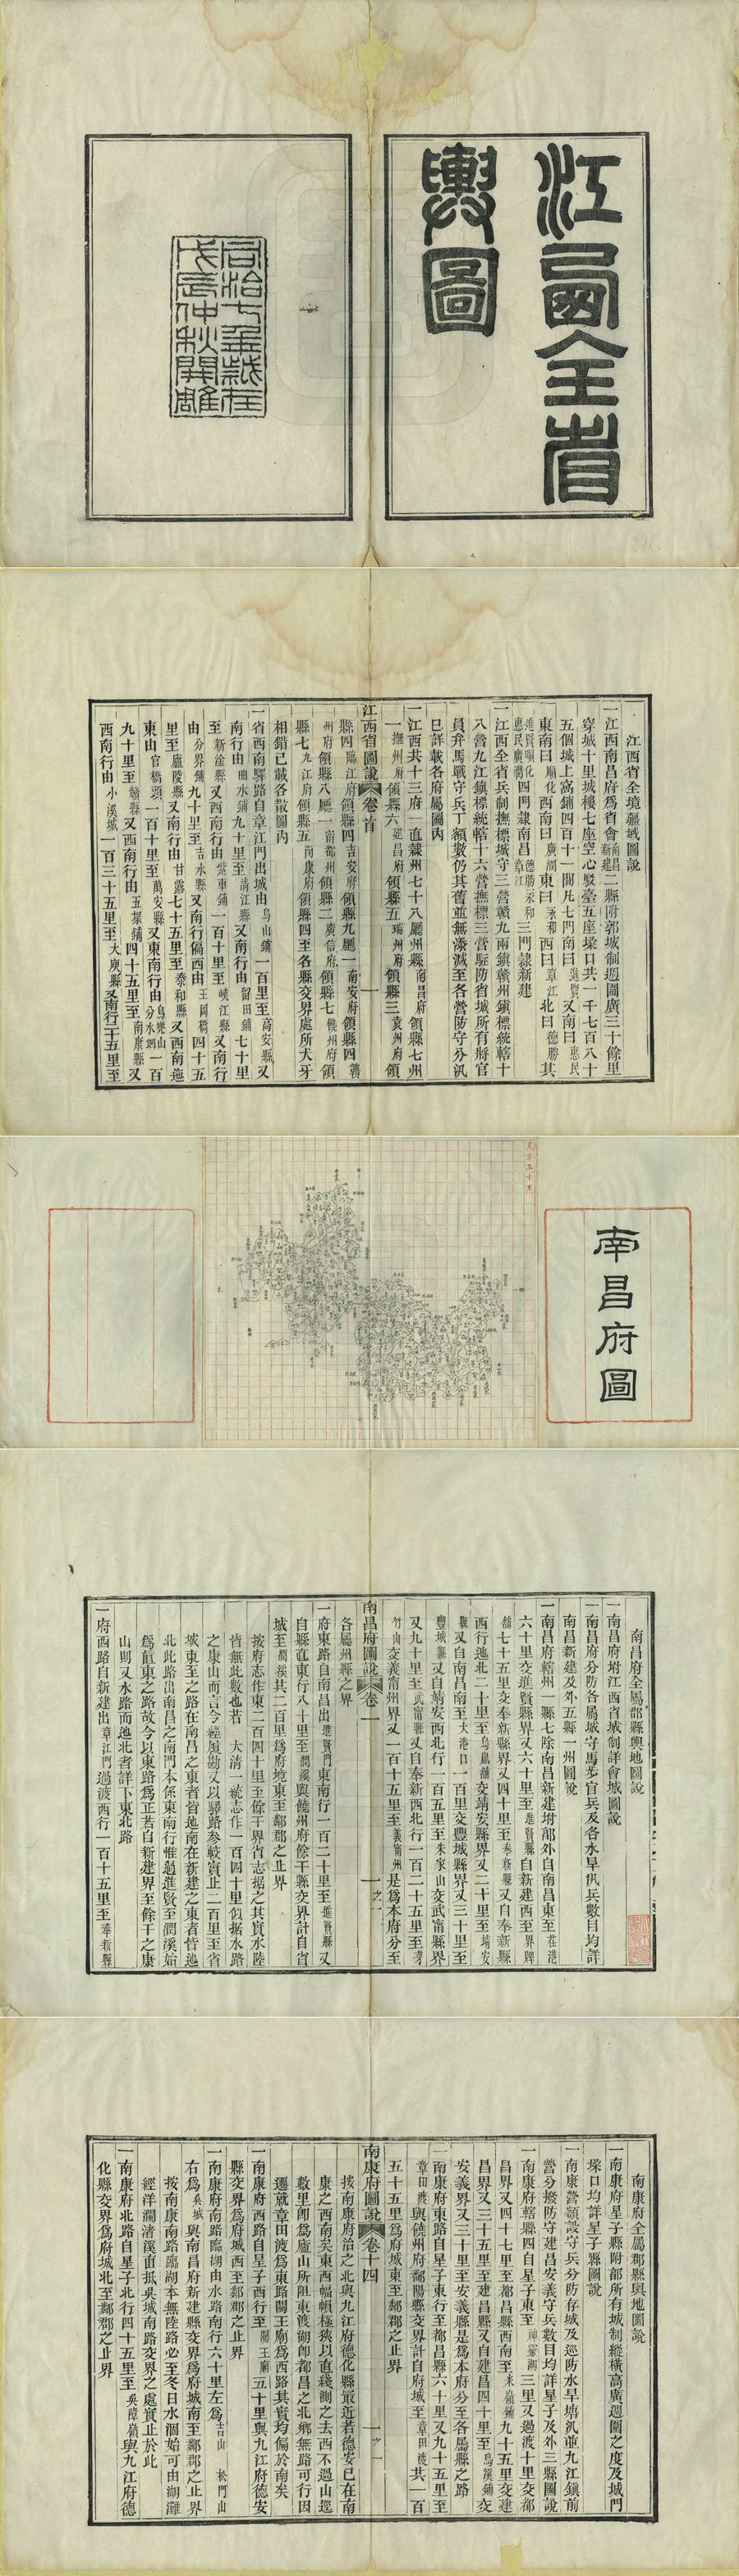 江西全省
輿圖
同治七年歲在
戊辰仲秋開雕
江西省全境疆域圖說
一江西南昌府爲省會南昌新建二縣附郭城制週圍廣三十餘里
穿城十里城樓七座空心駁臺五座垛口共一千七百八十
五個城上窩鋪四百十一間凡七門南曰進賢又南曰惠民
東南曰順化西南曰廣潤東曰永和西曰章江北曰德勝其
進賢順化惠民廣潤四門隸南昌德勝永和章江三門隸新建
一江西全省兵制撫標城守三營贛九兩鎮贛州鎮標統轄十
八營九江鎮標統轄十六營撫標三營駐防省城所有將官
員弁馬戰守兵丁額數仍其舊並無添減至各營防守分汛
已詳載各府屬圖內
一江西共十三府一直隸州七十八廳州縣南昌府領縣七州
一撫州府領縣六建昌府領縣五瑞州府領縣三袁州府領
江西省圖說 卷首 一
縣四臨江府領縣四吉安府領縣九廳一南安府領縣四贛
州府領縣八廳一甯都州領縣二廣信府領縣七饒州府領
縣七九江府領縣五南康府領縣四至各縣交界處所犬牙
相錯已載各散圖內
一省西南驛路自章江門出城由烏山鋪一百里至高安縣又
南行由曲水鋪九十里至清江縣又南行由留田鋪七十里
至新淦縣又西南行由柴車鋪一百十里至峽江縣又南行
由分界鋪九十里至吉水縣又南行偏西由王岡橋四十五
里至廬陵縣又南行由甘露七十五里至泰和縣又西南迤
東由官橋頭一百十里至萬安縣又東南行由烏兜山分水坳一百
九十里至贛縣又西南行由五梁鋪四十五里至南康縣又
西南行由小溪城一百三十五里至大庾縣又南行二十五里至
每方五十里
南昌府圖
南昌府全屬郡縣輿地圖說
一南昌府坿江西省城制詳會城圖說
一南昌府分防各屬城守馬步官兵及各水旱汛兵數目均詳
南昌新建及外五縣一州圖說
一南昌府轄州一縣七除南昌新建坿郭外自南昌東至茬港
六十里交進賢縣界又六十里至進賢縣自新建西至界牌
鋪七十五里交奉新縣界又四十里至奉新縣又自奉新縣
西行迤北二十里至烏嵐鋪交靖安縣界又二十里至靖安
縣又自南昌南至大港口一百里交豐城縣界又三十里至
豐城縣又自靖安西北行一百五里至朱家山交武甯縣界
又九十里至武甯縣又自奉新西北行一百二十五里至茅
竹山交義甯州界又一百十五里至義甯州是爲本府分至
南昌府圖說 卷一 一之一
各屬州縣之界
一府東路自南昌出進賢門東南行一百二十里至進賢縣又
自縣直東行八十里至潤溪與饒州府餘干縣交界計自省
城至潤溪共二百里爲府境東至鄰郡之止界
按府志作東二百四十里至餘干界省志據之其實水陸
皆無此數也若 大清一統志作一百四十里似據水路
之康山而言今經履勘又以驛路參較實止二百里至省
城東至之路在南昌之東者皆迤南在新建之東者皆迤
北此路出南昌之南門本係東南行惟過進賢至潤溪始
爲直東之路故今以東路爲正若自新建界至餘干之康
山則又水路而迤北者詳下東北路
一府西路自新建出章江門過渡西行一百十五里至奉新縣
南康府全屬郡縣輿地圖說
一南康府星子縣附郭所有城制縱橫高廣週圍之度及城門
垛口均詳星子縣圖說
一南康營額設守兵分防存城及巡防水旱塘汛並九江鎮前
營分撥防守建昌安義守兵數目均詳星子及外三縣圖說
一南康府轄縣四自星子東至神靈湖三里又過渡十里交都
昌界又四十七里至都昌縣西南至末嶺鋪九十五里交建
昌界又三十五里至建昌縣又自建昌四十里至烏溪鋪交
安義界又三十里至安義縣是爲本府分至各屬縣之路
一南康府東路自星子東行至都昌縣六十里又九十五里至
章田渡與饒州府鄱陽縣交界計自府城至章田渡共一百
五十五里爲府城東至鄰郡之止界
南康府圖說 卷十四 一之一
按南康府治之北與九江府德化縣最近若德安已在南
康之西南矣東西幅幀極狹以直綫測之去西不過山逕
數里卽爲廬山所阻東渡湖卽都昌之北鄉無路可行因
遷就章田渡爲東路關王廟爲西路其實均偏於南矣
一南康府西路自星子西行至關王廟五十里與九江府德安
縣交界爲府城西至鄰郡之止界
一南康府南路臨湖由水路南行六十里左爲吉山 松門山
右爲吳城與南昌府新建縣交界爲府城南至鄰郡之止界
按南康南路臨湖本無陸路必至冬日水涸始可由湖灘
經洋瀾渚溪直抵吳城南路交界之處實止於此
一南康府北路自星子北行四十五里至吳障嶺與九江府德
化縣交界爲府城北至鄰郡之止界